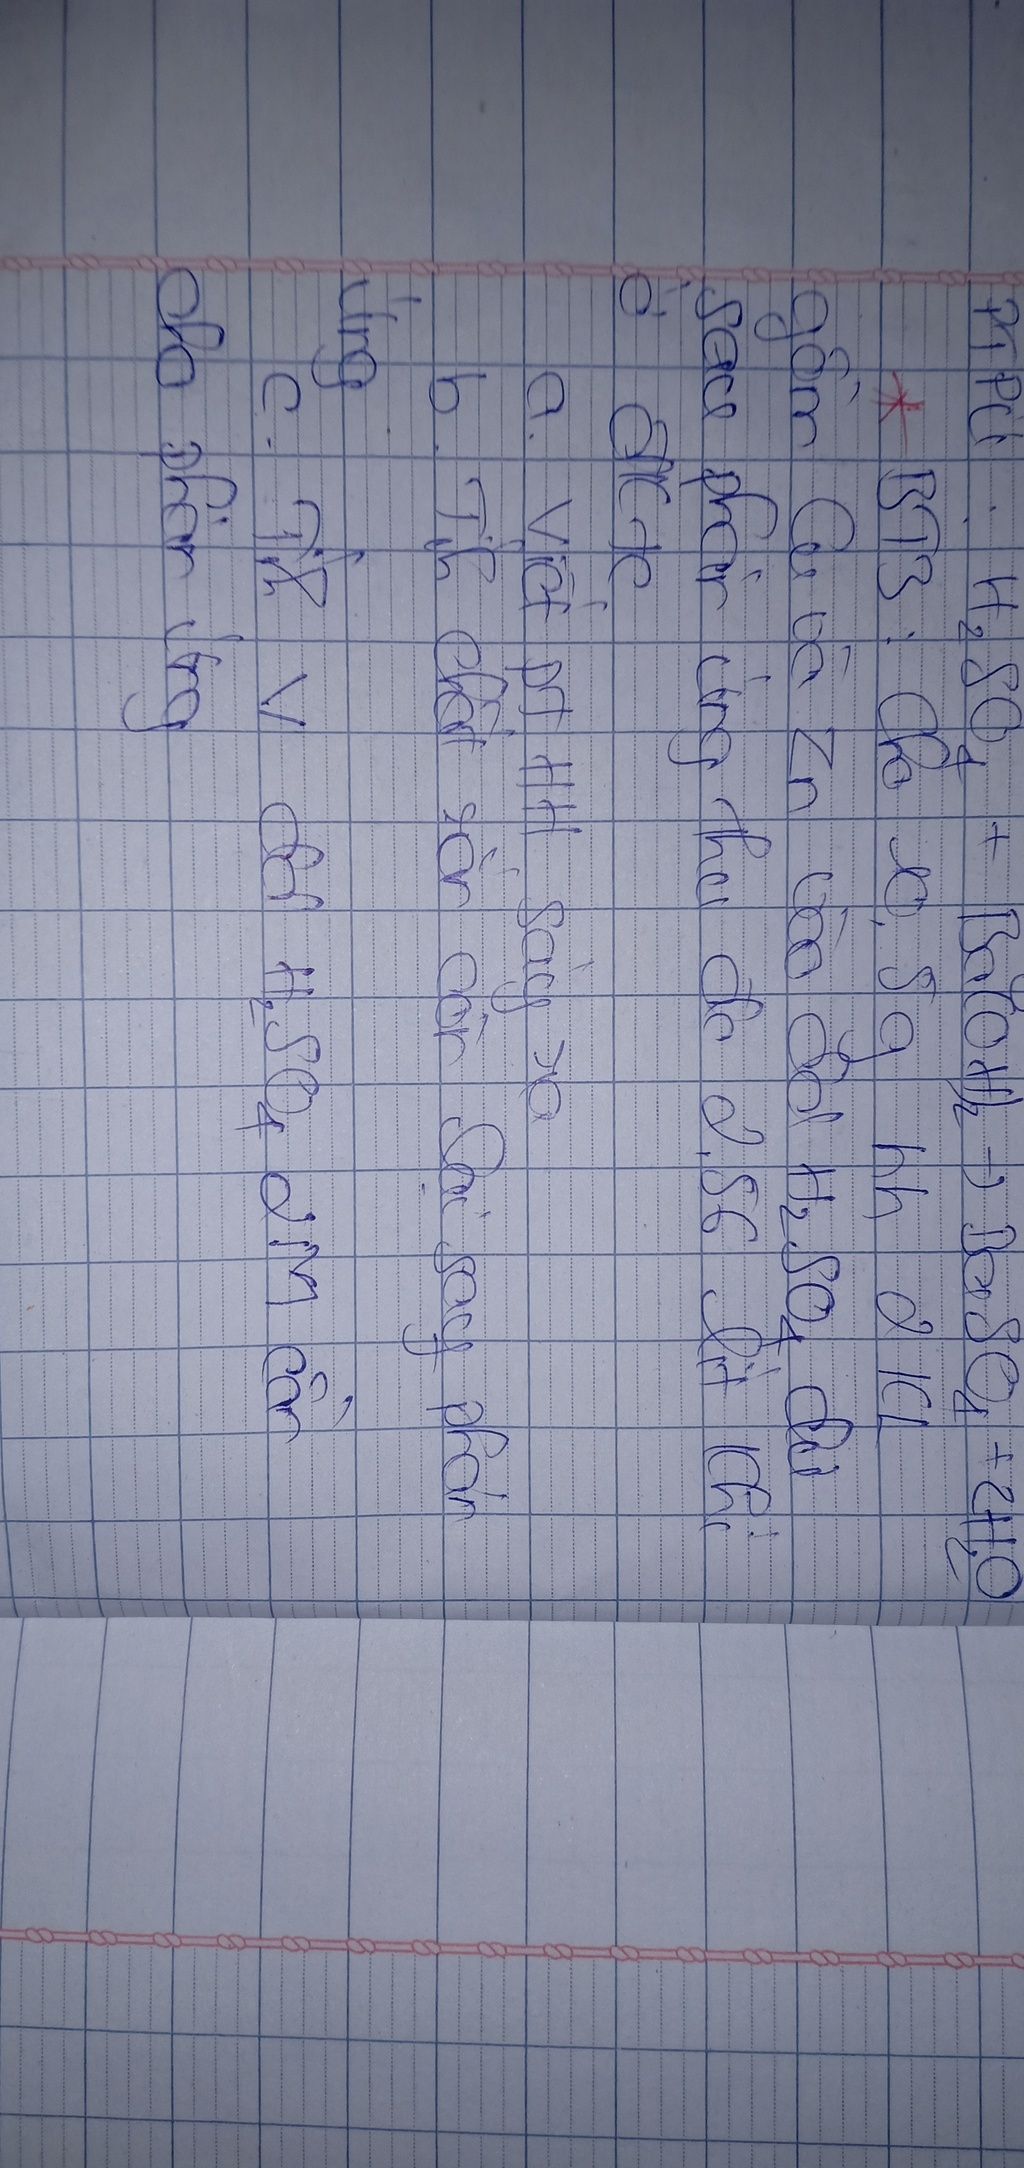 PTPƯ: H₂SO₄ + Ba(OH)₂ → BaSO₄ + 2H₂O
* BT3: Cho 10,5g hh 2 KL
gồm Cu và Zn vào dd H₂SO₄ dư
sau phản ứng thu đc 2,56 lít khí
ở đktc
a. Viết pt HH sảy ra
b. Tíh chất rắn còn lại sau phản
ứng
c. Tíh V dd H₂SO₄ 2M cần
cho phản ứng